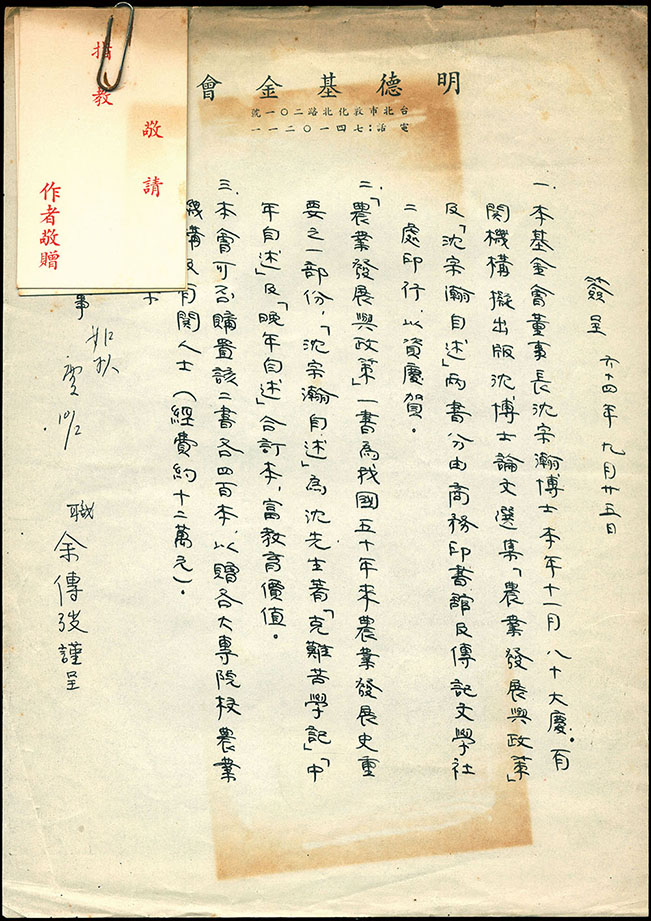 明德基金會
台北市敦化北路二〇一號
電話：七四一〇二一一
簽呈 六十四年九月廿五日
一、本基金會董事長沈宗瀚博士本年十一月八十大慶，有
関機構擬出版沈博士論文選集「農業發展與政策」
及「沈宗瀚自述」両書分由商務印書舘及傳記文學社
二處印行，以資慶賀。
二、「農業發展與政策」一書為我國五十年來農業發展史重
要之一部份，「沈宗瀚自述」為沈先生著「克難苦學記」「中
年自述」及「晚年自述」合訂本，富教育價值。
三、本會可否購置該二書各四百本，以贈各大專院校農業
機構及有関人士（經費約十二萬元）。
事
職
余傳
謹呈
敬請
指教
作者敬贈